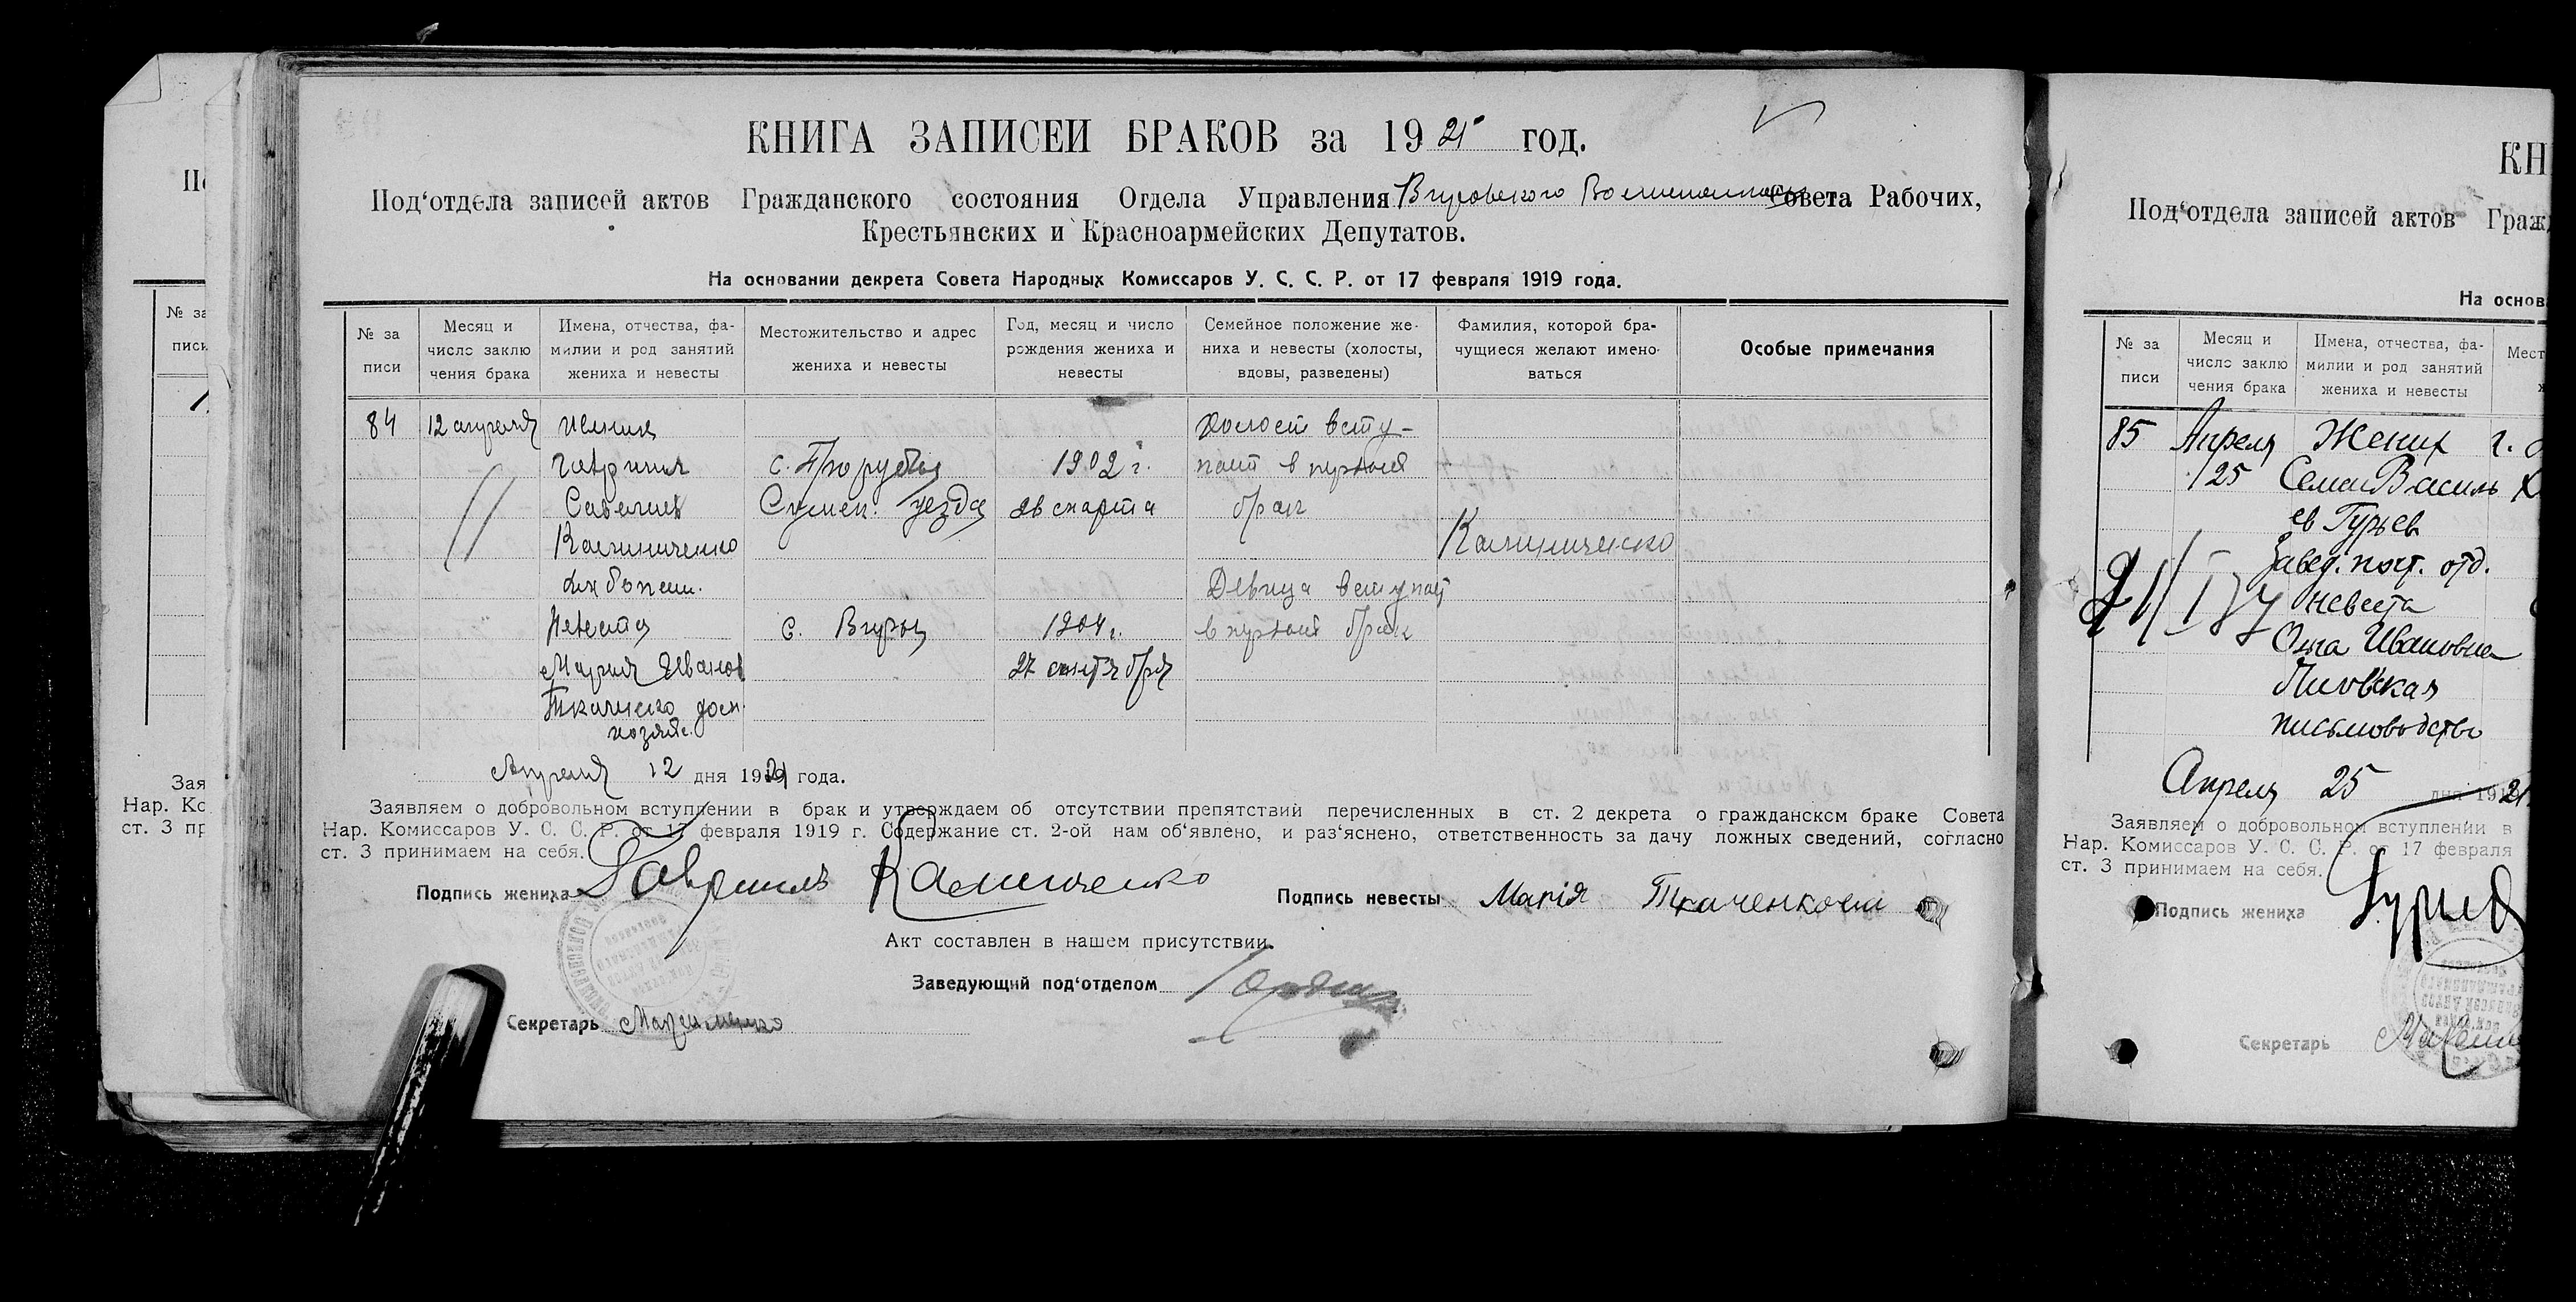 КНИГА ЗАПИСЕИ БРАКОВ за 19 21 год.
Под‘отдела записей актов Гражданского состояния Отдела Управления Вировского Совета Рабочих,
Крестьянских и Красноармейских Депутатов.
На основании декрета Совета Народных Комиссаров У. С. С. Р. от 17 февраля 1919 года.
№ за
писи
Месяц и
число заклю
чения брака
Имена, отчества, фа-
милии и род занятий
жениха и невесты
Местожительство и адрес
жениха и невесты
Год, месяц и число
рождения жениха и
невесты
Семейное положение же-
ниха и невесты (холосты,
вдовы, разведены)
Фамилия, которой бра-
чущиеся желают имено-
ваться
Особые примечания
84
12 апреля
Гавриил
Савелиев
Калиниченко
хлебопаш.
Невеста
Мария Иванов
Ткаченко дом.
хозяйс.
с. Прорубы
Сумск. уезда
с. Виры
1902 г.
26 марта
1904 г.
27 сентября
Холост всту-
пает в первый
брак
Девица вступает
в первый брак
Калиниченко
Апреля 12 дня 1921 года.
Заявляем о добровольном вступлении в брак и утверждаем об отсутствии препятствий перечисленных в ст. 2 декрета о гражданском браке Совета
Нар. Комиссаров У. С. С. Р. от 17 февраля 1919 г. Содержание ст. 2-ой нам об‘явлено, и раз‘яснено, ответственность за дачу ложных сведений, согласно
ст. 3 принимаем на себя.
Подпись жениха Гавриилъ Калиниченко
Подпись невесты Марія Ткаченкова
Акт составлен в нашем присутствии.
Заведующий под‘отделом
Секретарь Максименко
№ за
писи
Зая
Нар. Ко
ст. 3 пр
КН
Под‘отдела записей актов Гражд
На основ
№ за
писи
Месяц и
число заклю
чения брака
Имена, отчества, фа-
милии и род занятий
жениха и невесты
Мест
85
Апреля
25
Жених
Семен Василь
ев Гурьев
Завед. почт. отд.
невеста
Ольга Ивановна
письмоводство
Апреля 25 дня 1921
Заявляем о добровольном вступлении в
Нар. Комиссаров У. С. С. Р. от 17 февраля
ст. 3 принимаем на себя.
Подпись жениха Гурьев
Секретарь Максим